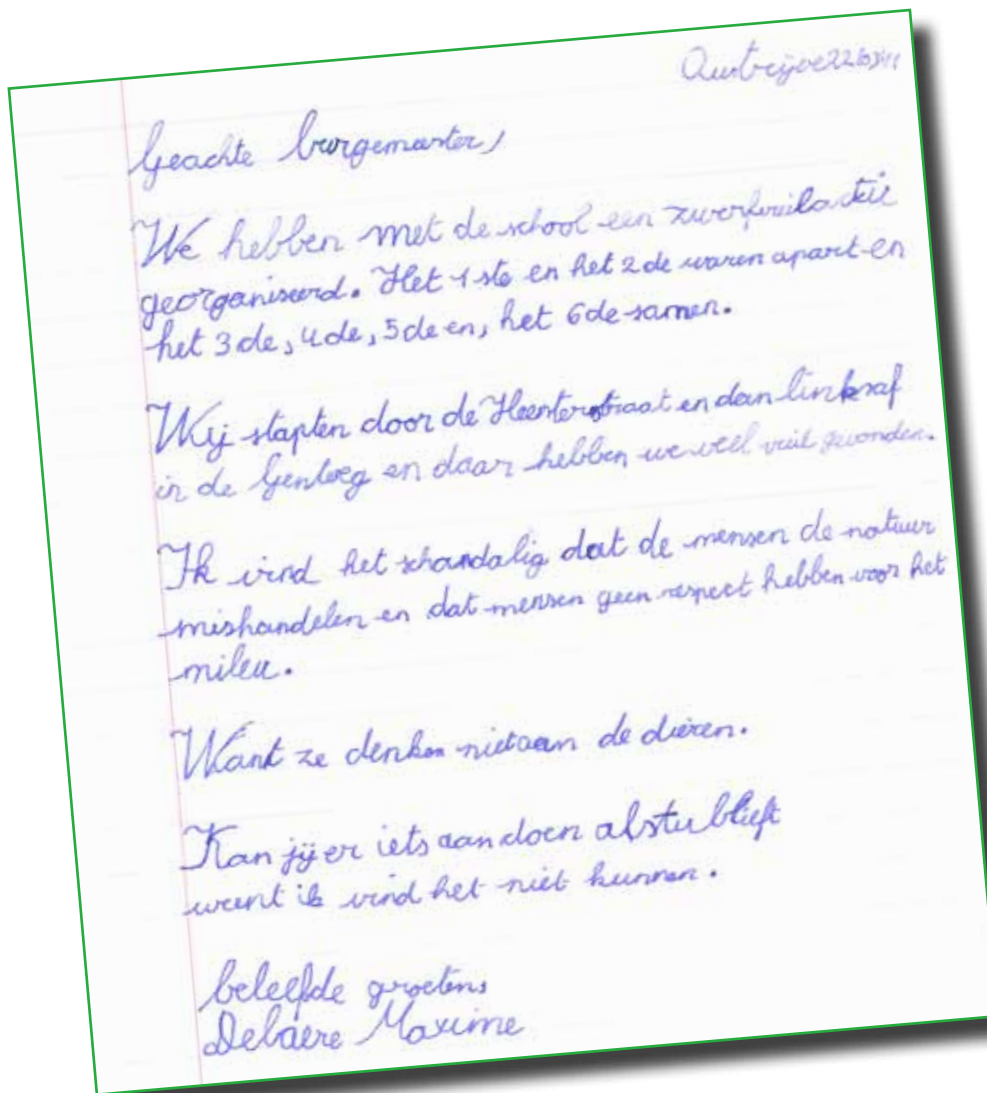 Outrijve 22/03/11
Geachte burgemeester,
We hebben met de school een zwerfvuilactie
georganiseerd. Het 1ste en het 2de waren apart en
het 3de, 4de, 5de en, het 6de samen.
Wij stapten door de Heesterstraat en dan linksaf
in de Gentweg en daar hebben we veel vuil gevonden.
Ik vind het schandalig dat de mensen de natuur
mishandelen en dat mensen geen respect hebben voor het
mileu.
Want ze denken niet aan de dieren.
Kan jij er iets aan doen alstublieft
want ik vind het niet kunnen.
beleefde groetens
Debaere Maxime